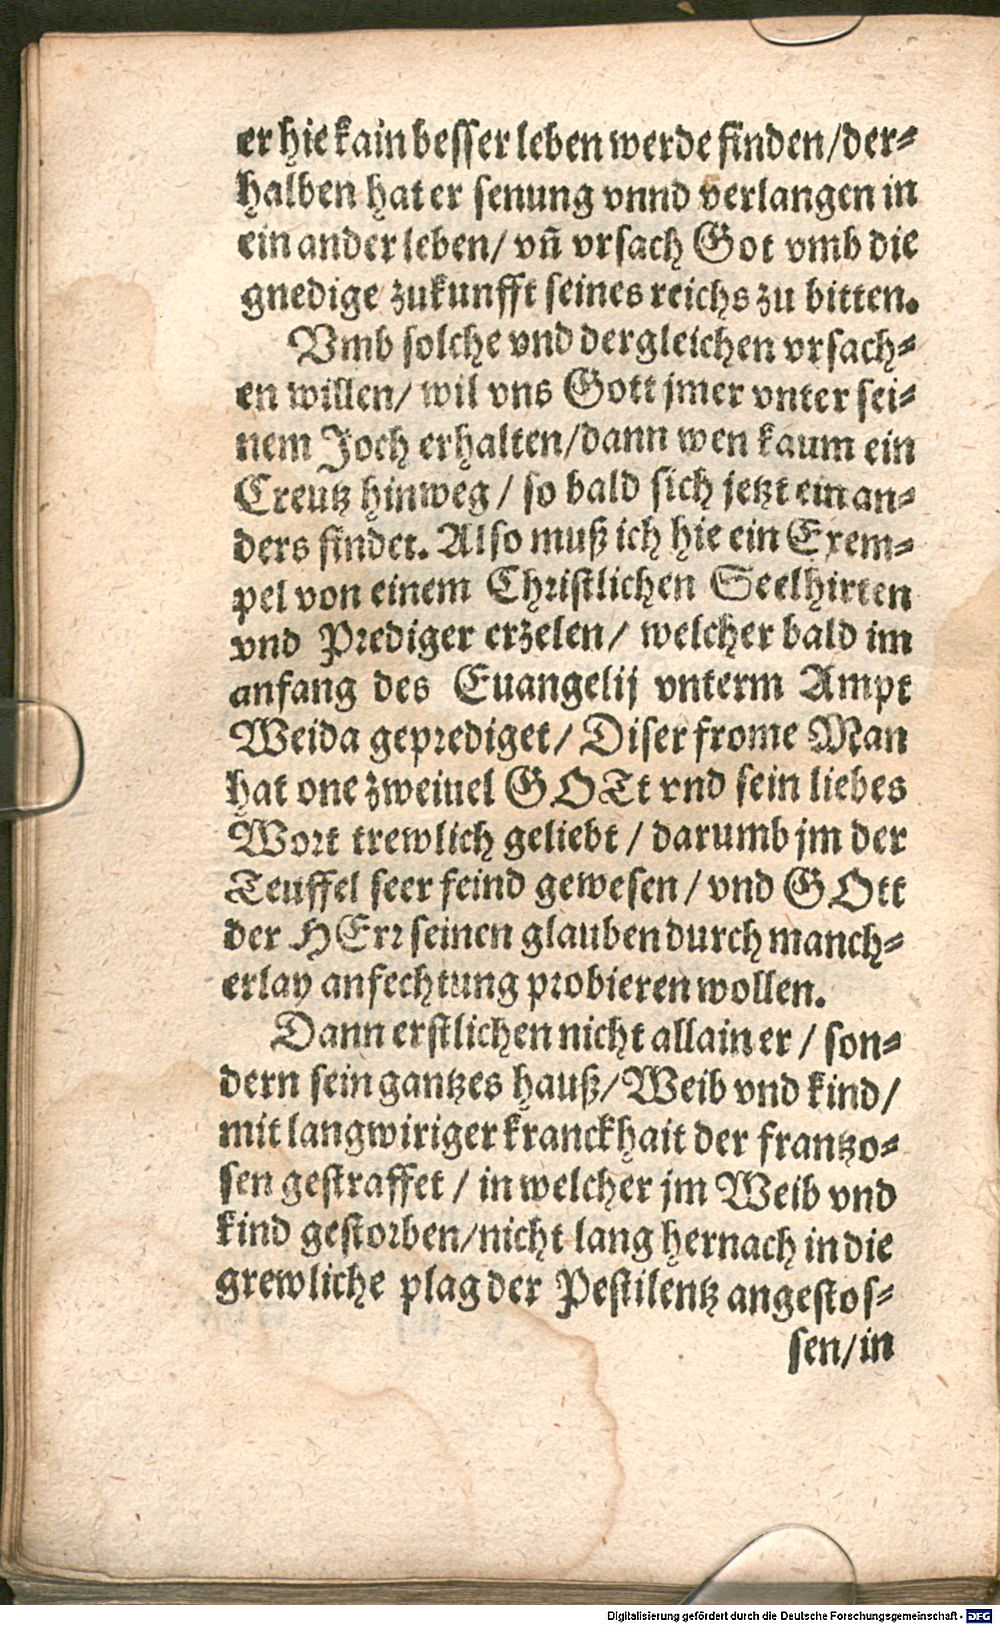 er hie kain besser leben werde finden/der⸗
halben hat er senung vnnd verlangen in
ein ander leben/ vñ vrsach Got vmb die
gnedige zukunfft seines reichs zu bitten.
Vmb solche vnd dergleichen vrsach⸗
en willen/ wil vns Gott jmer vnter sei⸗
nem Joch erhalten/dann wen kaum ein
Creutz hinweg / so bald sich jetzt ein an⸗
ders findet. Also muß ich hie ein Exem⸗
pel von einem Christlichen Seelhirten
vnd Prediger erzelen/ welcher bald im
anfang des Euangelij vnterm Ampt
Weida geprediget/ Diser frome Man
hat one zweiuel GOTt vnd sein liebes
Wort trewlich geliebt / darumb jm der
Teuffel seer feind gewesen / vnd GOtt
der HErr seinen glauben durch manch⸗
erlay anfechtung probieren wollen.
Dann erstlichen nicht allain er / son⸗
dern sein gantzes hauß/ Weib vnd kind/
mit langwiriger kranckhait der frantzo⸗
sen gestraffet / in welcher jm Weib vnd
kind gestorben/nicht lang hernach in die
grewliche plag der Pestilentz angestos⸗
sen/in
Digitalisierung gefördert durch die Deutsche Forschungsgemeinschaft - DFG